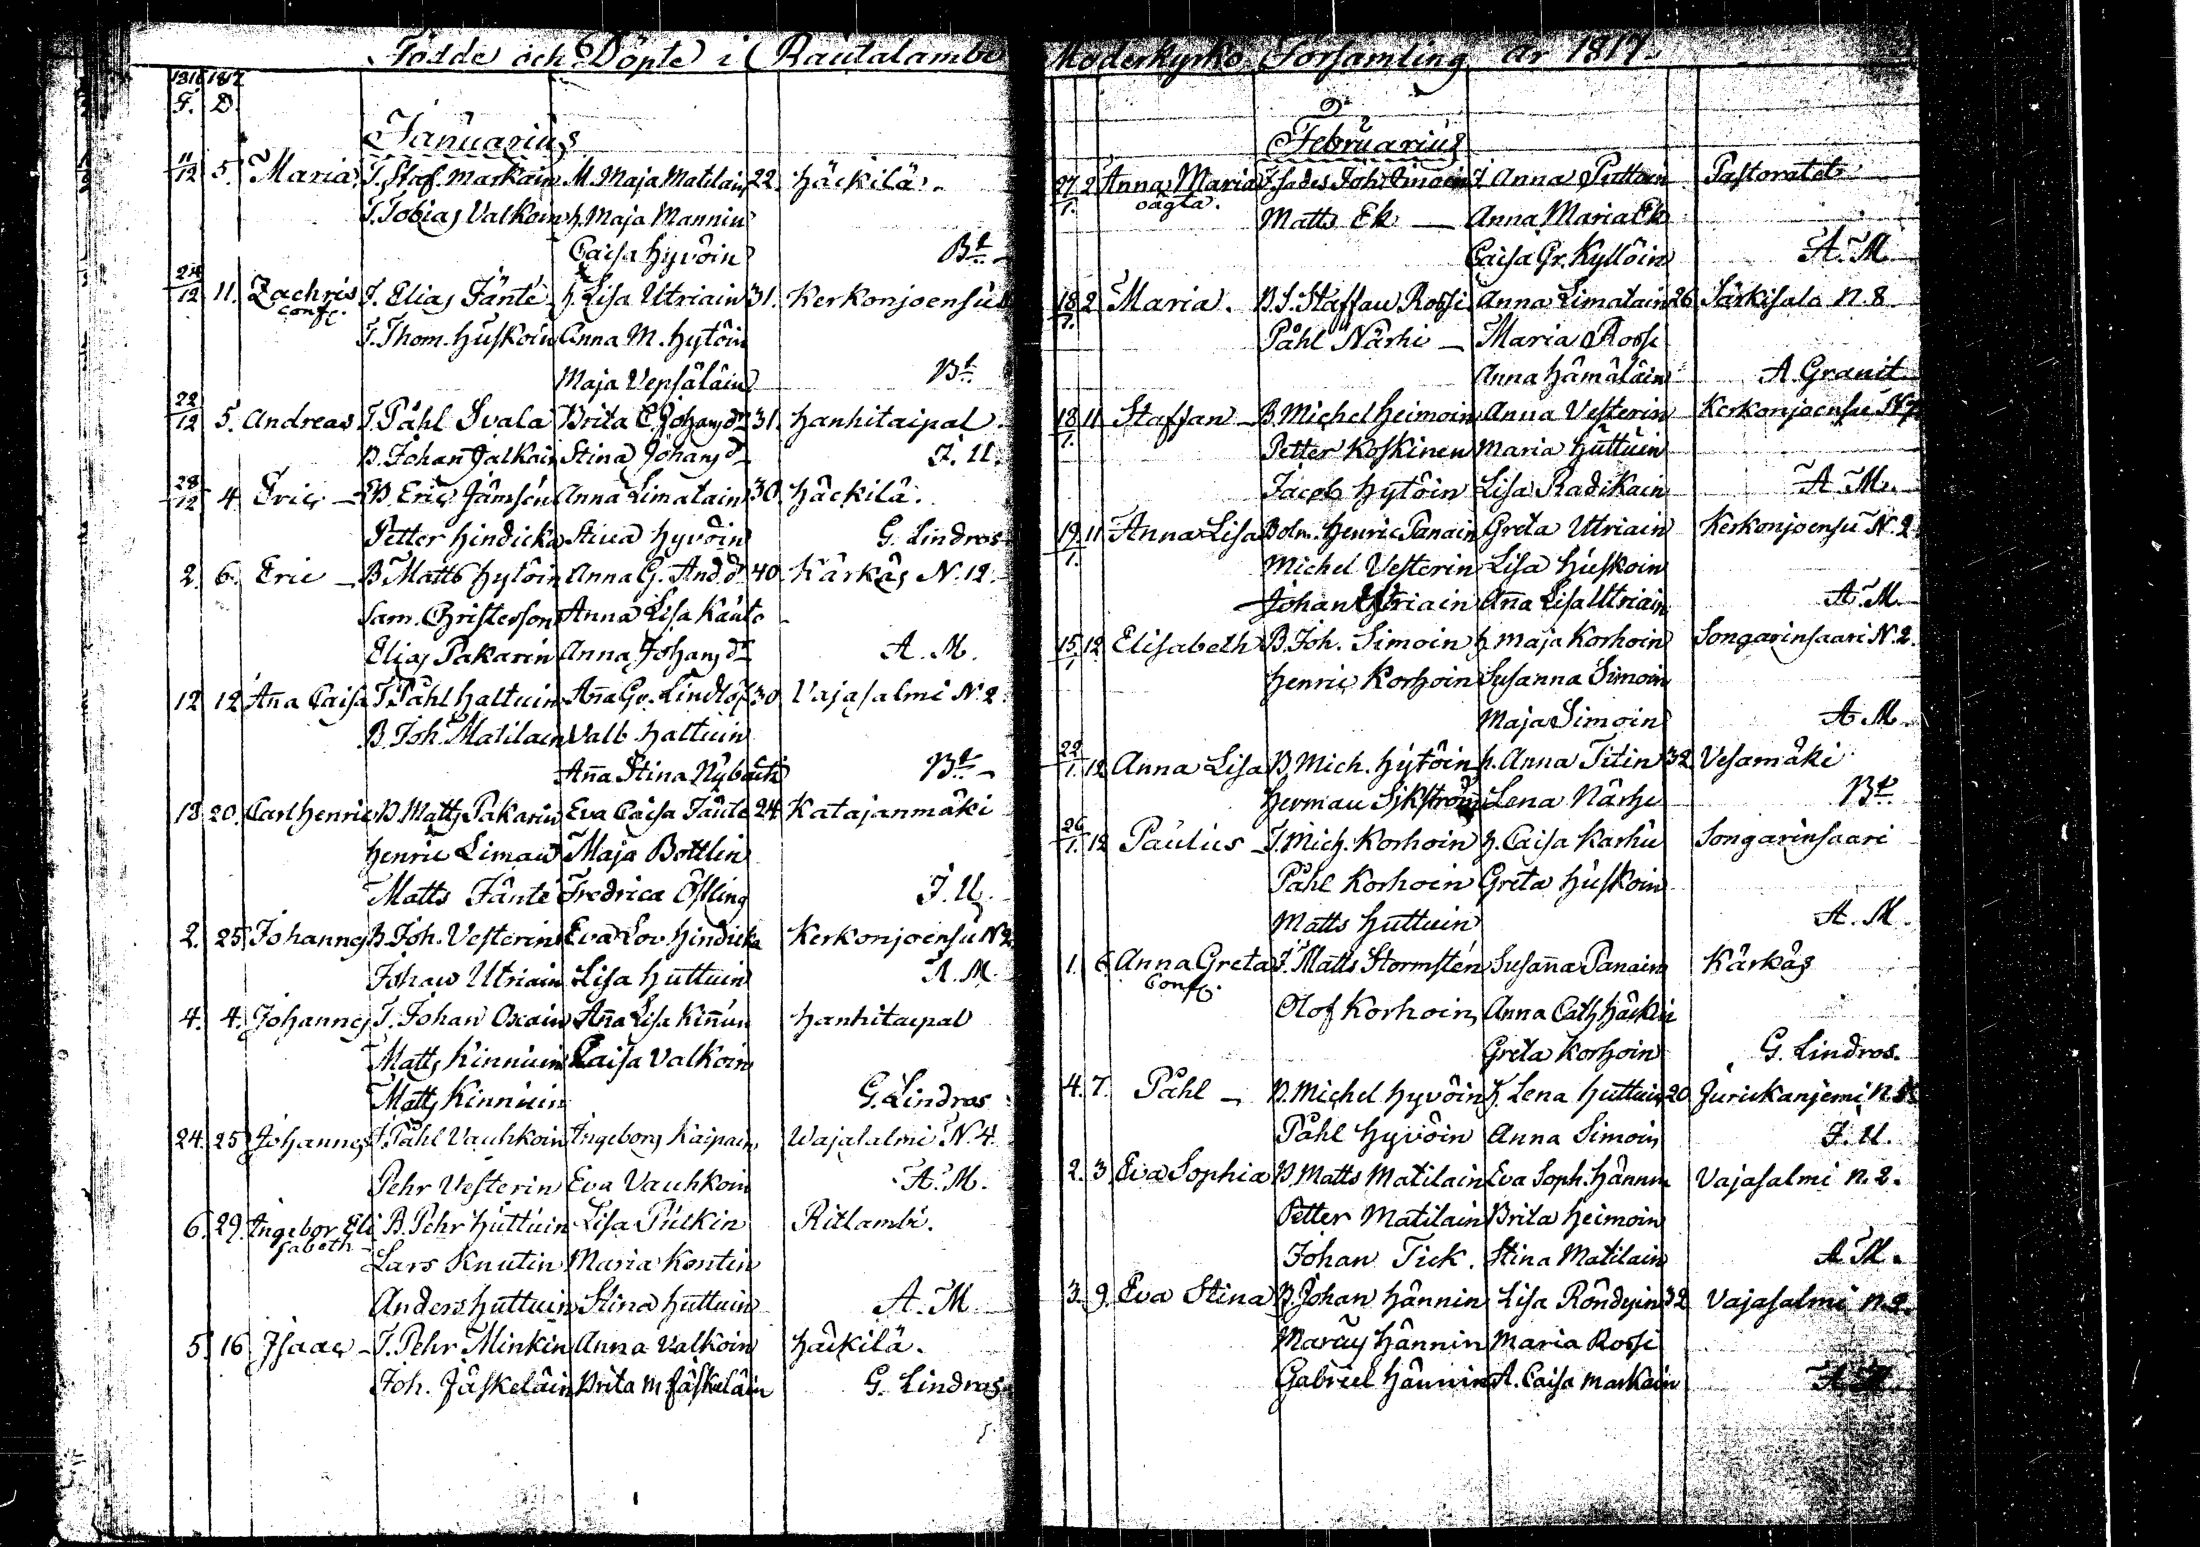 Födde och Döpte i Rautalambi
1816 1817
F. D.
Januarius
11/12 5. Maria T. Staf. Markain M. Maja Matilain 22. Häckilä.
T. Tobias Valkoin h. Maja Mannin
Caisa Hyvöin Bt.
24/12 11. Zachris I. Elias Jänte h. Lisa Utriain 31. Kerkonjoensu
conf.
T. Thom. Huskoin Anna M. Hytöin
Maja Vepsäläin Bt.
22/12 5. Andreas T. Påhl Svala Brita C. Johansdr 31. Hanhitaipal.
B. Johan Jalkain Stina Johansdr J. U.
28/12 4. Eric B. Eric Jämsén Anna Limatain 30. Häckilä.
Petter Hindicka Stina Hyvöin G. Lindros
2. 6. Eric B. Matts Hytöin Anna G. And.dr 40. Kärkäs N. 12.
Sam. Christersson Anna Lisa Kauto
Elias Pakarin Anna Johansdr A. M.
12 12 Aña Caisa T. Påhl Hattuin Aña Gr. Lindlöf 30 Vajasalmi N. 2.
B. Joh. Matilain Valb. Hattuin
Aña Stina Nyb Bt.
18 20. Carl Henric B. Matts Pakarin Eva Caisa Jänte 24. Katajanmäki
Henric Liman Maja Bottlin
Matts Jänte Fredrica Öfling J. U.
2. 25 Johannes B. Joh. Vesterin Eva Lov. Hindicka Kerkonjoensu N 2
Johan Utriain Lisa Huttuin A. M.
4. 4. Johannes T. Johan Oxain Aña Lisa Kiñun Hanhitaipal
Matts Kinnuin Caisa Valkoin
Matts Kinnuin G. Lindros
24. 25 Johannes T. Påhl Vauhkoin Ingeborg Kaipain Wajasalmi N. 4.
Pehr Vesterin Eva Vauhkoin A. M.
6. 29. Ingebor Eli B. Pehr Huttuin Lisa Pulkin Ritlambi.
sabeth
Lars Knutin Maria Kontin
Anders Huttuin Stina Huttuin A. M
5. 16 Isaac T. Pehr Minkin Anna Valkoin Häckilä.
Joh. Jäskeläin Brita M Jäskeläin G. Lindros
Moderkyrko Församling år 1817.
Februarius
27/1. 2 Anna Maria Joh. Simoin Anna Puttoin Pastoratet
oägta.
Matts Ek Anna Maria Ek
Caisa Gr. Kyllöin A. M.
18/1. 2 Maria. B. S. Staffan Rossi Anna Limatain 26 Särkisalo N. 8
Påhl Närhi Maria Rossi
Anna Hämäläin A. Granit
18/1. 11 Staffan B. Michel Heimoin Anna Vesterin Kerkonjoensu N 7
Petter Koskinen Maria Huttuin
Jacob Hytöin Lisa Radikain A. M.
19/1. 11 Anna Lisa Bolm. Henric Panain Greta Utriain Kerkonjoensu N. 2
Michel Vesterin Lisa Huskoin
Johan Utriain Aña Lisa Utriain A. M.
15/1 12 Elisabeth B. Joh. Simoin h. Maja Korhoin Songarinsaari N. 2.
Henric Korhoin Susanna Simoin
Maja Simoin A. M.
22/1. 12 Anna Lisa B. Mich. Hytöin h. Anna Titin 32 Vesamäki
Herman Sjkström Lena Närhe Bt.
26/1. 12 Paulus I. Mich. Korhoin h. Caisa Karhu Songarinsaari
Påhl Korhoin Greta Huskoin
Matts Huttuin A. M.
1. 6 Anna Greta I. Matts Stormstén Susaña Panain Kärkäs
Conf.
Olof Korhoin, Anna Cath Häckin
Greta Korhoin G. Lindros.
4. 7. Påhl B. Michel Hyvöin h. Lena Huttuin 20 Jurickanjemi N.
Påhl Hyvöin Anna Simoin J. U.
2. 3 Eva Sophia B. Matts Matilain Eva Soph. Hännin Vajasalmi N. 2.
Petter Matilain Brita Heimoin
Johan Tick. Stina Matilain A. M.
3. 9. Eva Stina B. Johan Hännin Lisa Röndyin 32 Vajasalmi N. 2.
Marcus Hännin Maria Rossi
Gabriel Hännin A. Caisa Markain A. M.